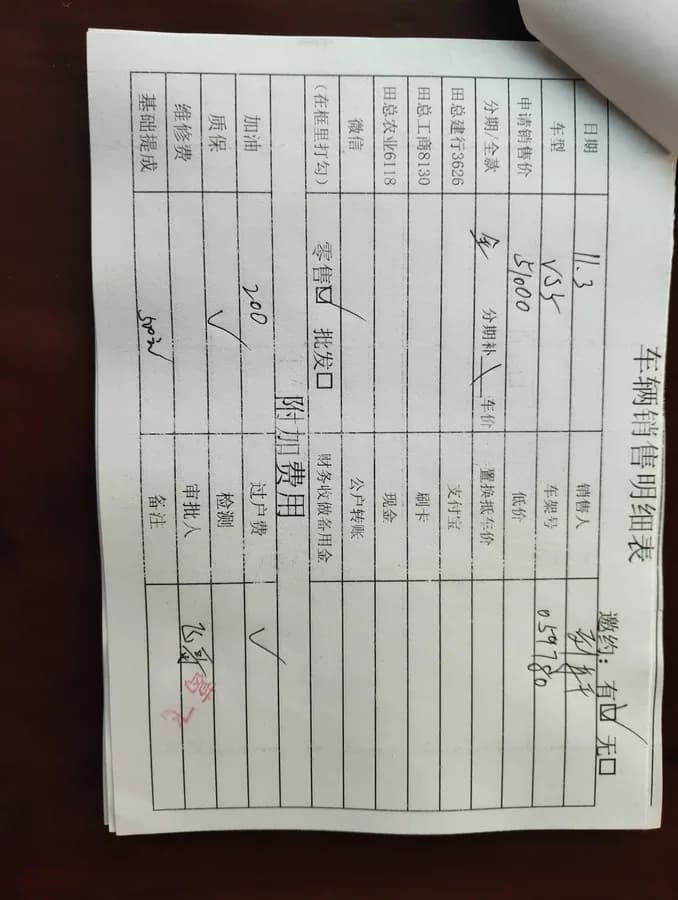 车辆销售明细表
邀约：有☑ 无☐
日期 11.3 销售人
车型 VS5 车架号 059780
申请销售价 51000 低价
分期/全款 全 分期补 车价 置换抵车价
田总建行3626 支付宝
田总工商8130 刷卡
田总农业6118 现金
微信 公户转账
（在框里打勾） 零售☑ 批发☐ 财务收做备用金
附加费用
加油 200 过户费 ✓
质保 ✓ 检测
维修费 审批人 飞哥
基础提成 500元 备注